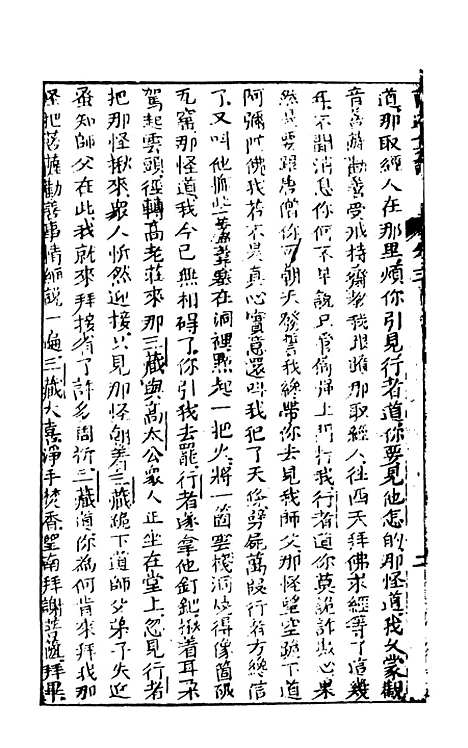 道那取經人在那里煩你引見行者道你要見他怎的那怪道我久蒙觀
音菩薩勸善受戒持齋教我跟隨那取經人往西天拜佛求經等了這幾
年不聞消息你何不早說只管倚上門打我行者道你莫詭詐欺心果
然是要跟唐僧你可朝天發誓我纔帶你去見我師父那怪望空跪下道
阿彌陀佛我若不是真心實意還叫我犯了天條劈屍萬段行者方纔信
了又叫他搬些蘆葦塞在洞裡點起一把火將一箇雲棧洞燒得像箇破
瓦窑那怪道我今已無相碍了你引我去罷行者遂拿他釘鈀揪着耳朵
駕起雲頭徑轉高老莊來那三藏與高太公眾人正坐在堂上忽見行者
把那怪揪來眾人忻然迎接只見那怪朝着三藏跪下道師父弟子失迎
蚤知師父在此我就來拜接省了許多周折三藏道你為何肯來拜我那
怪把菩薩勸善事情細說一遍三藏大喜淨手焚香望南拜謝菩薩拜畢